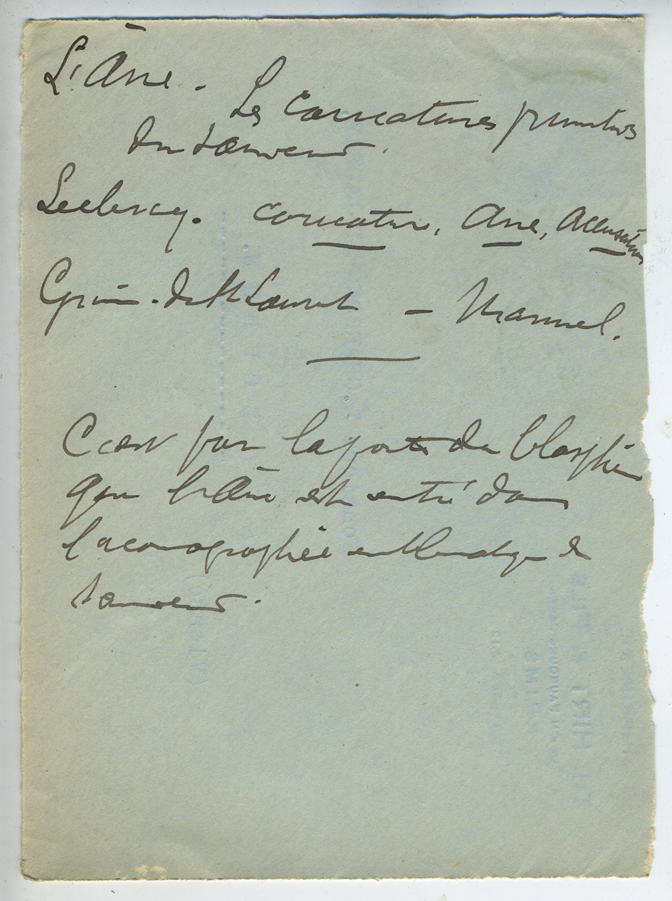 L'Âne. Les caricatures primitives
du Sauveur.
Leclercq. Caricature, Âne, Accusations
Grim. de St Laurent — Manuel.
C'est par la porte du blasphème
que l'Âne est entré dans
l'iconographie emblématique du
Sauveur.